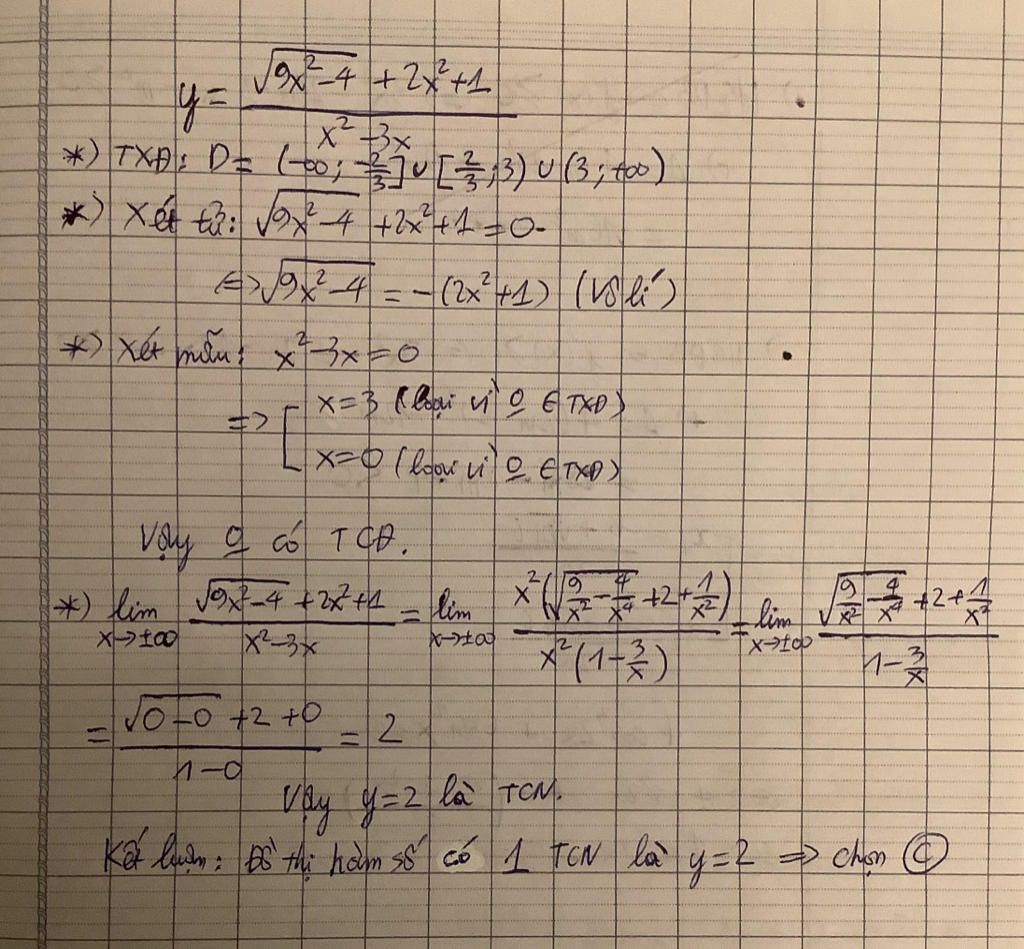 y = \frac{\sqrt{9x^2-4} + 2x^2+1}{x^2-3x}
*) TXĐ: D = (-∞; -\frac{2}{3}] ∪ [\frac{2}{3}; 3) ∪ (3; +∞)
*) Xét tử: \sqrt{9x^2-4} + 2x^2+1 = 0
⇔ \sqrt{9x^2-4} = -(2x^2+1) (Vô lí)
*) Xét mẫu: x^2-3x=0
=> [ x=3 (loại vì o ∈ TXĐ)
x=0 (loại vì o ∈ TXĐ)
Vậy o có TCĐ.
*) \lim_{x→±∞} \frac{\sqrt{9x^2-4}+2x^2+1}{x^2-3x} = \lim_{x→±∞} \frac{x^2(\sqrt{\frac{9}{x^2}-\frac{4}{x^4}}+2+\frac{1}{x^2})}{x^2(1-\frac{3}{x})} = \lim_{x→±∞} \frac{\sqrt{\frac{9}{x^2}-\frac{4}{x^4}}+2+\frac{1}{x^2}}{1-\frac{3}{x}}
= \frac{\sqrt{0-0}+2+0}{1-0} = 2
Vậy y=2 là TCN.
Kết luận: Đồ thị hàm số có 1 TCN là y=2 => chọn C